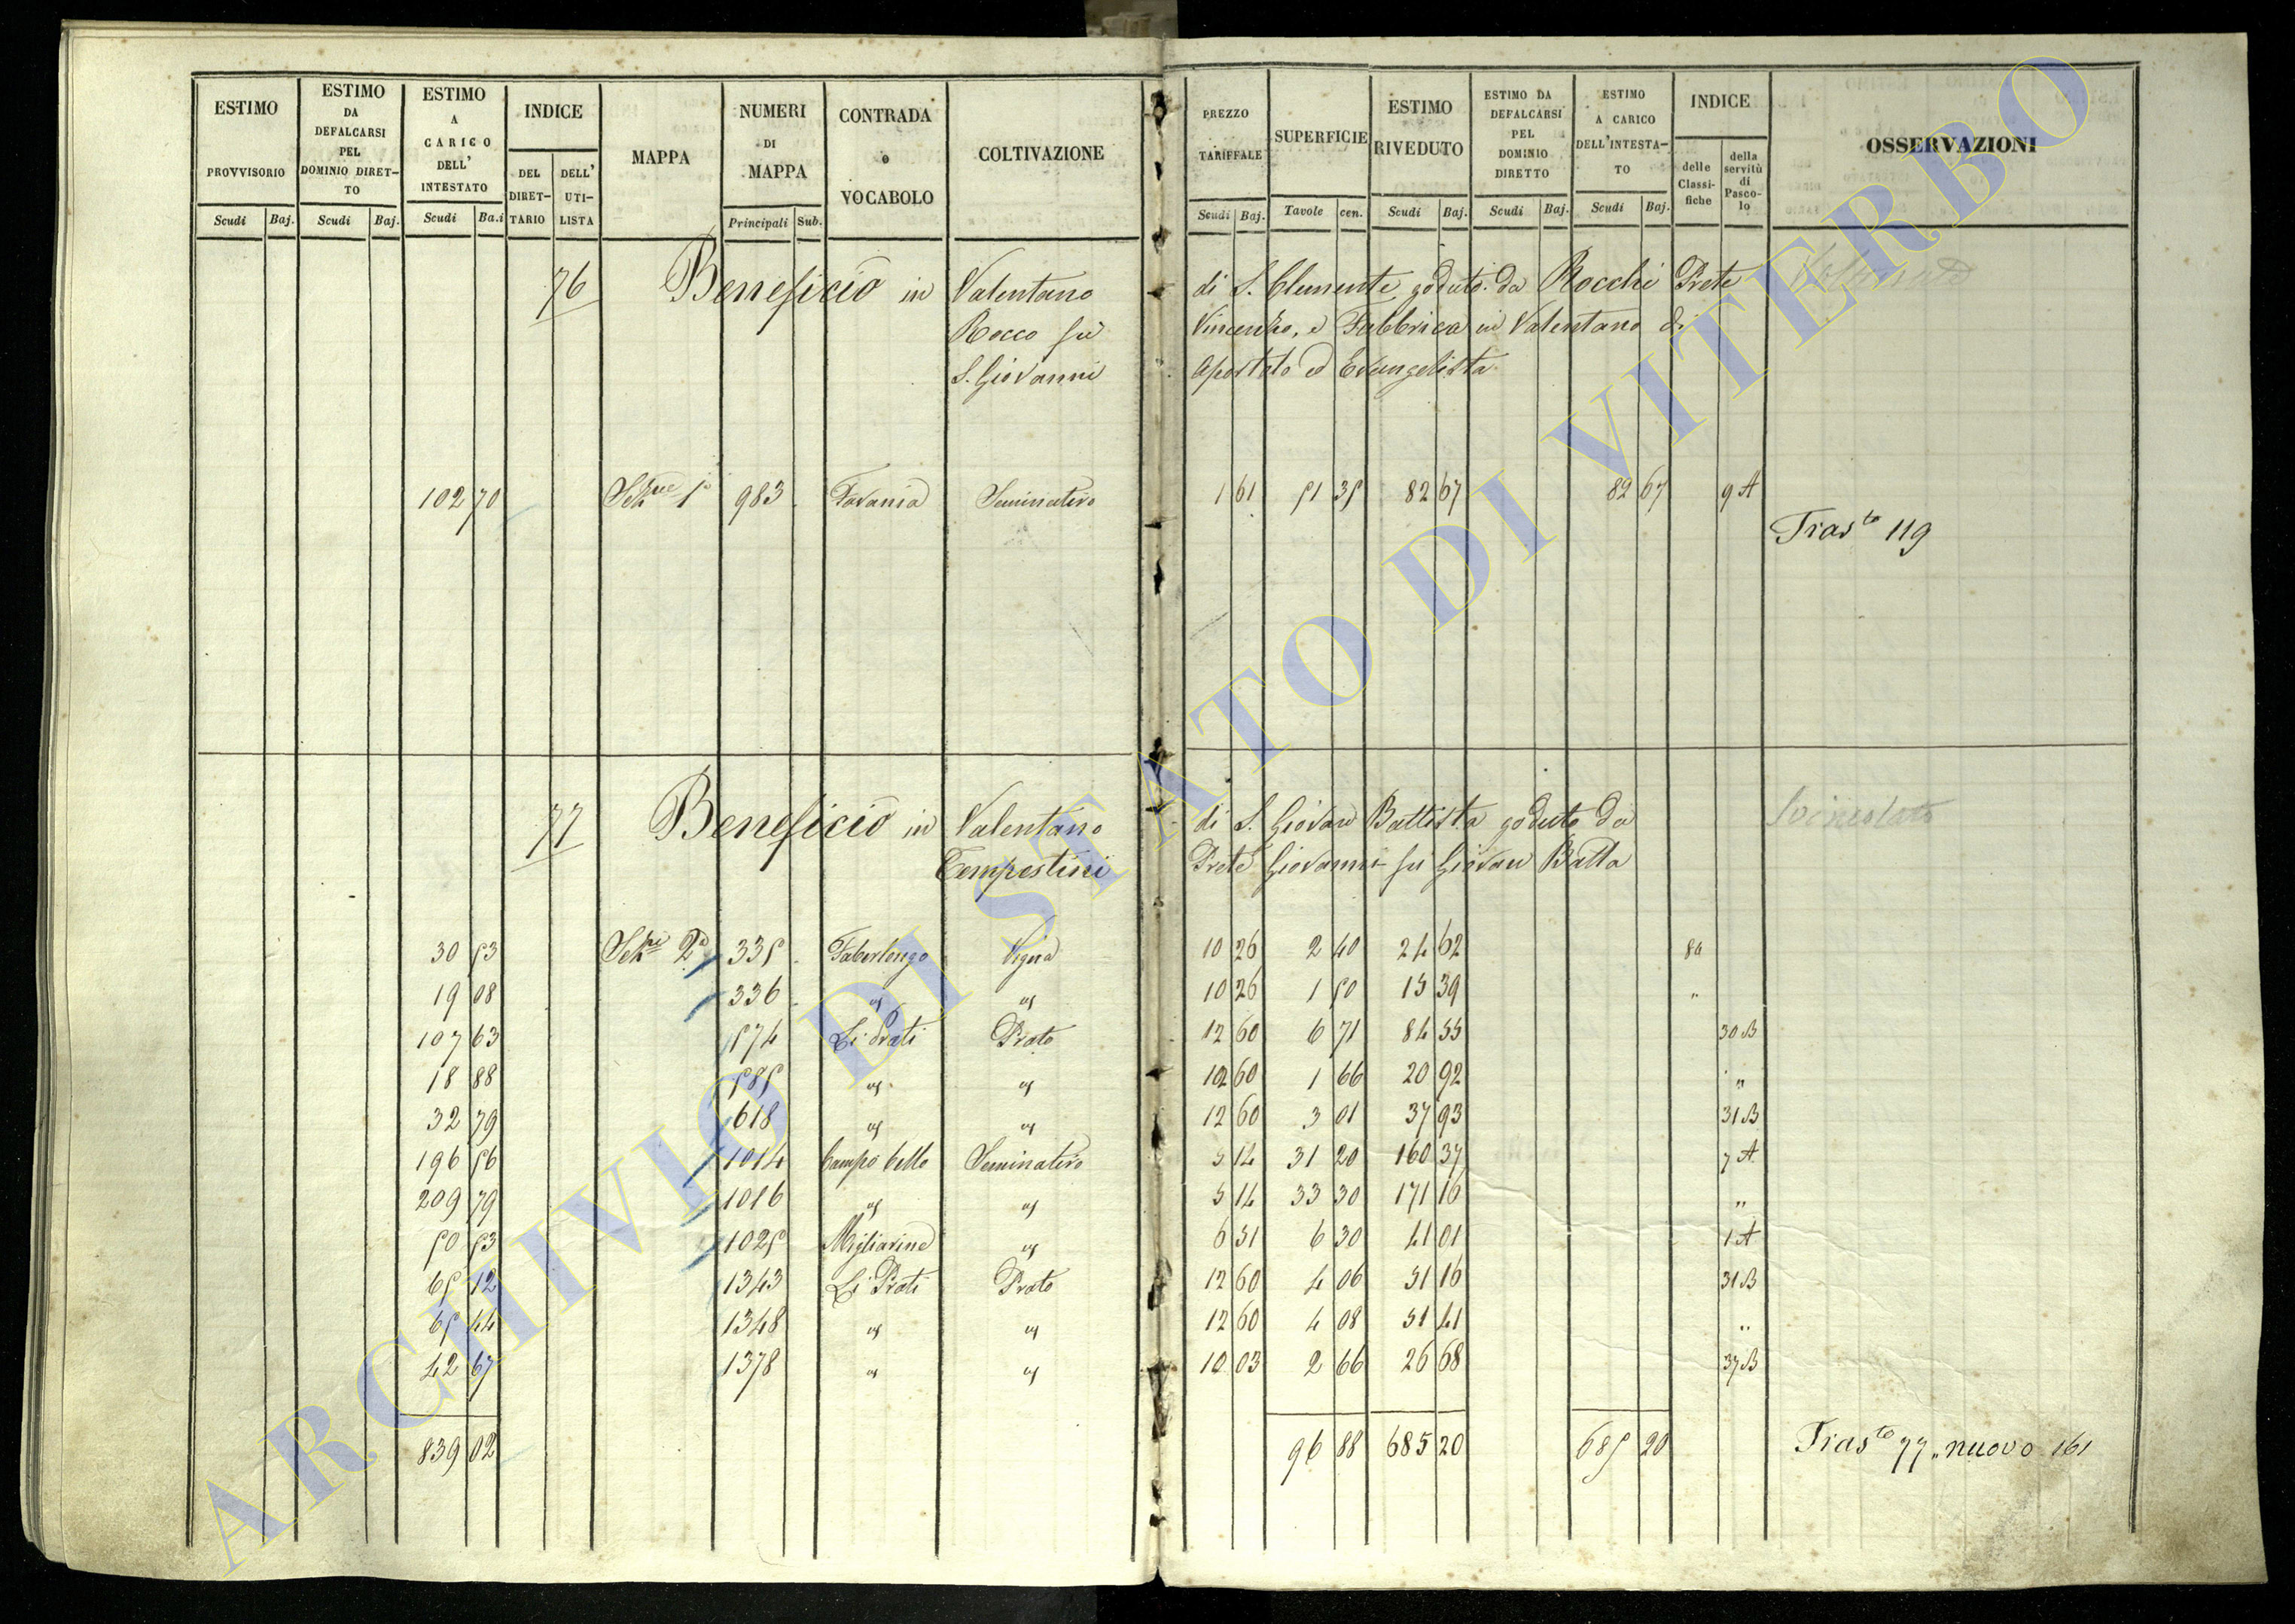 ESTIMO PROVVISORIO
Scudi Baj.
ESTIMO DA DEFALCARSI PEL DOMINIO DIRET-TO
Scudi Baj.
ESTIMO A CARICO DELL' INTESTATO
Scudi Ba.i
INDICE
DEL DIRET-TARIO
DELL' UTI-LISTA
MAPPA
NUMERI DI MAPPA
Principali Sub.
CONTRADA o VOCABOLO
COLTIVAZIONE
PREZZO TARIFFALE
Scudi Baj.
SUPERFICIE
Tavole cen.
ESTIMO RIVEDUTO
Scudi Baj.
ESTIMO DA DEFALCARSI PEL DOMINIO DIRETTO
Scudi Baj.
ESTIMO A CARICO DELL'INTESTA-TO
Scudi Baj.
INDICE
delle Classi-fiche
della servitù di Pasco-lo
OSSERVAZIONI
76 Beneficio in Valentano di S. Clemente goduto da Rocchi Prete
Rocco fu Vincenzo, e Fabbrica in Valentano di
S. Giovanni Apostolo ed Evangelista
102 70 Sezne 1a 983 Favania Seminativo 1 61 51 35 82 67 82 67 9 A
Trasto 119
77 Beneficio in Valentano di S. Giovan Battista goduto da Svincolato
Tempestini Prete Giovanni fu Giovan Batta
30 53 Sezne 2a 335 Faberlongo Vigna 10 26 2 40 24 62 89
19 08 336 " " 10 26 1 50 15 39 "
107 63 574 Li Prati Prato 12 60 6 71 84 55 30 B
18 88 585 " " 12 60 1 66 20 92 "
32 79 618 " " 12 60 3 01 37 93 31 B
196 56 1014 Campo bello Seminativo 5 14 31 20 160 37 7 A
209 79 1016 " " 5 14 33 30 171 16 "
50 53 1025 Migliarine " 6 51 6 30 41 01 1 A
65 12 1343 Li Prati Prato 12 60 4 06 51 16 31 B
65 44 1348 " " 12 60 4 08 51 41 "
42 67 1378 " " 10 03 2 66 26 68 37 B
839 02 96 88 685 20 685 20 Trasto 77 " nuovo 161
ARCHIVIO DI STATO DI VITERBO